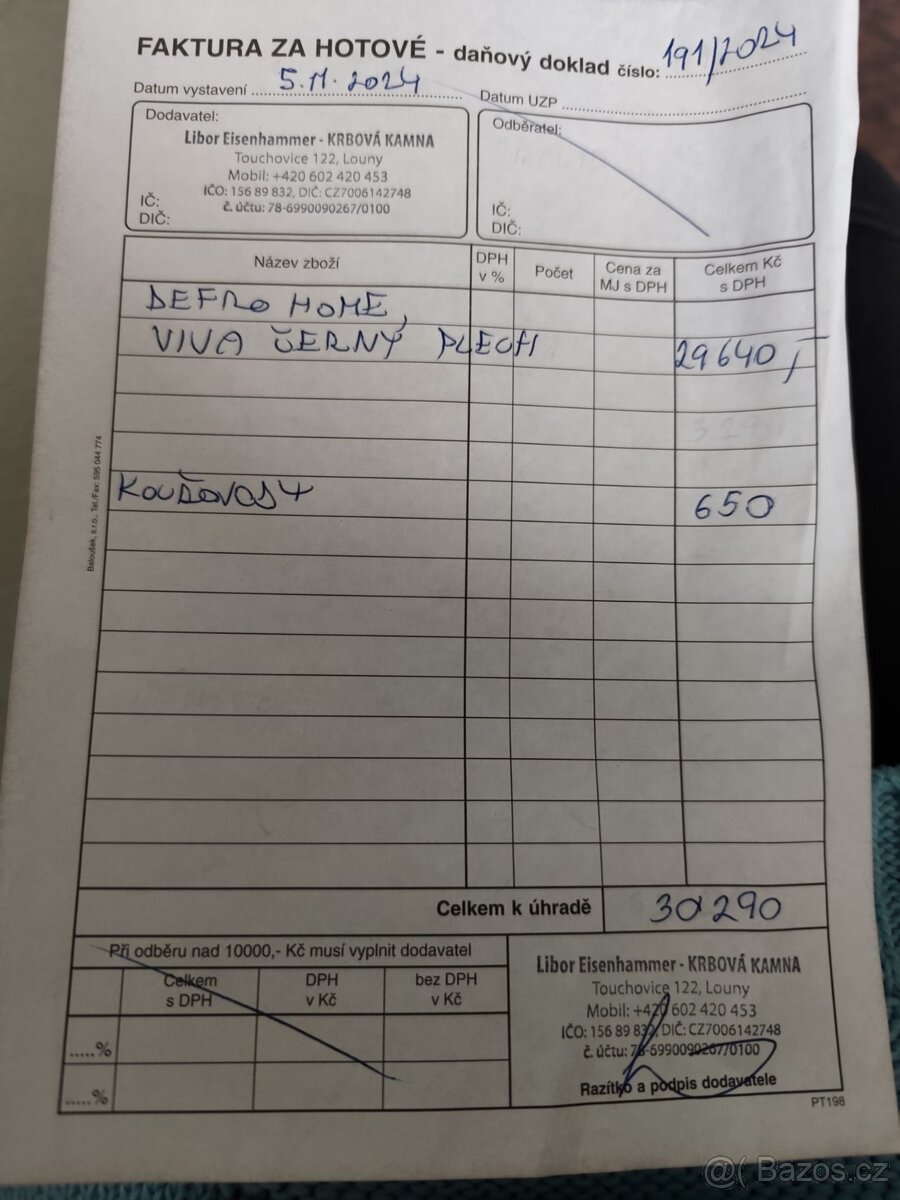 FAKTURA ZA HOTOVÉ - daňový doklad číslo: 191/2024
Datum vystavení 5.11.2024 Datum UZP
Dodavatel:
Libor Eisenhammer - KRBOVÁ KAMNA
Touchovice 122, Louny
Mobil: +420 602 420 453
IČO: 156 89 832, DIČ: CZ7006142748
č. účtu: 78-6990090267/0100
IČ:
DIČ:
Odběratel:
IČ:
DIČ:
Název zboží DPH v % Počet Cena za MJ s DPH Celkem Kč s DPH
DEFRO HOME,
VIVA ČERNÝ PLECH 29640,-
KOUŘOVOSY 650
Celkem k úhradě 30290
Při odběru nad 10000,- Kč musí vyplnit dodavatel
Celkem s DPH DPH v Kč bez DPH v Kč
.....%
.....%
Libor Eisenhammer - KRBOVÁ KAMNA
Touchovice 122, Louny
Mobil: +420 602 420 453
IČO: 156 89 832, DIČ: CZ7006142748
č. účtu: 78-6990090267/0100
Razítko a podpis dodavatele
PT198
Baloušek, s.r.o., Tel./Fax: 595 044 774
@( Bazoš.cz